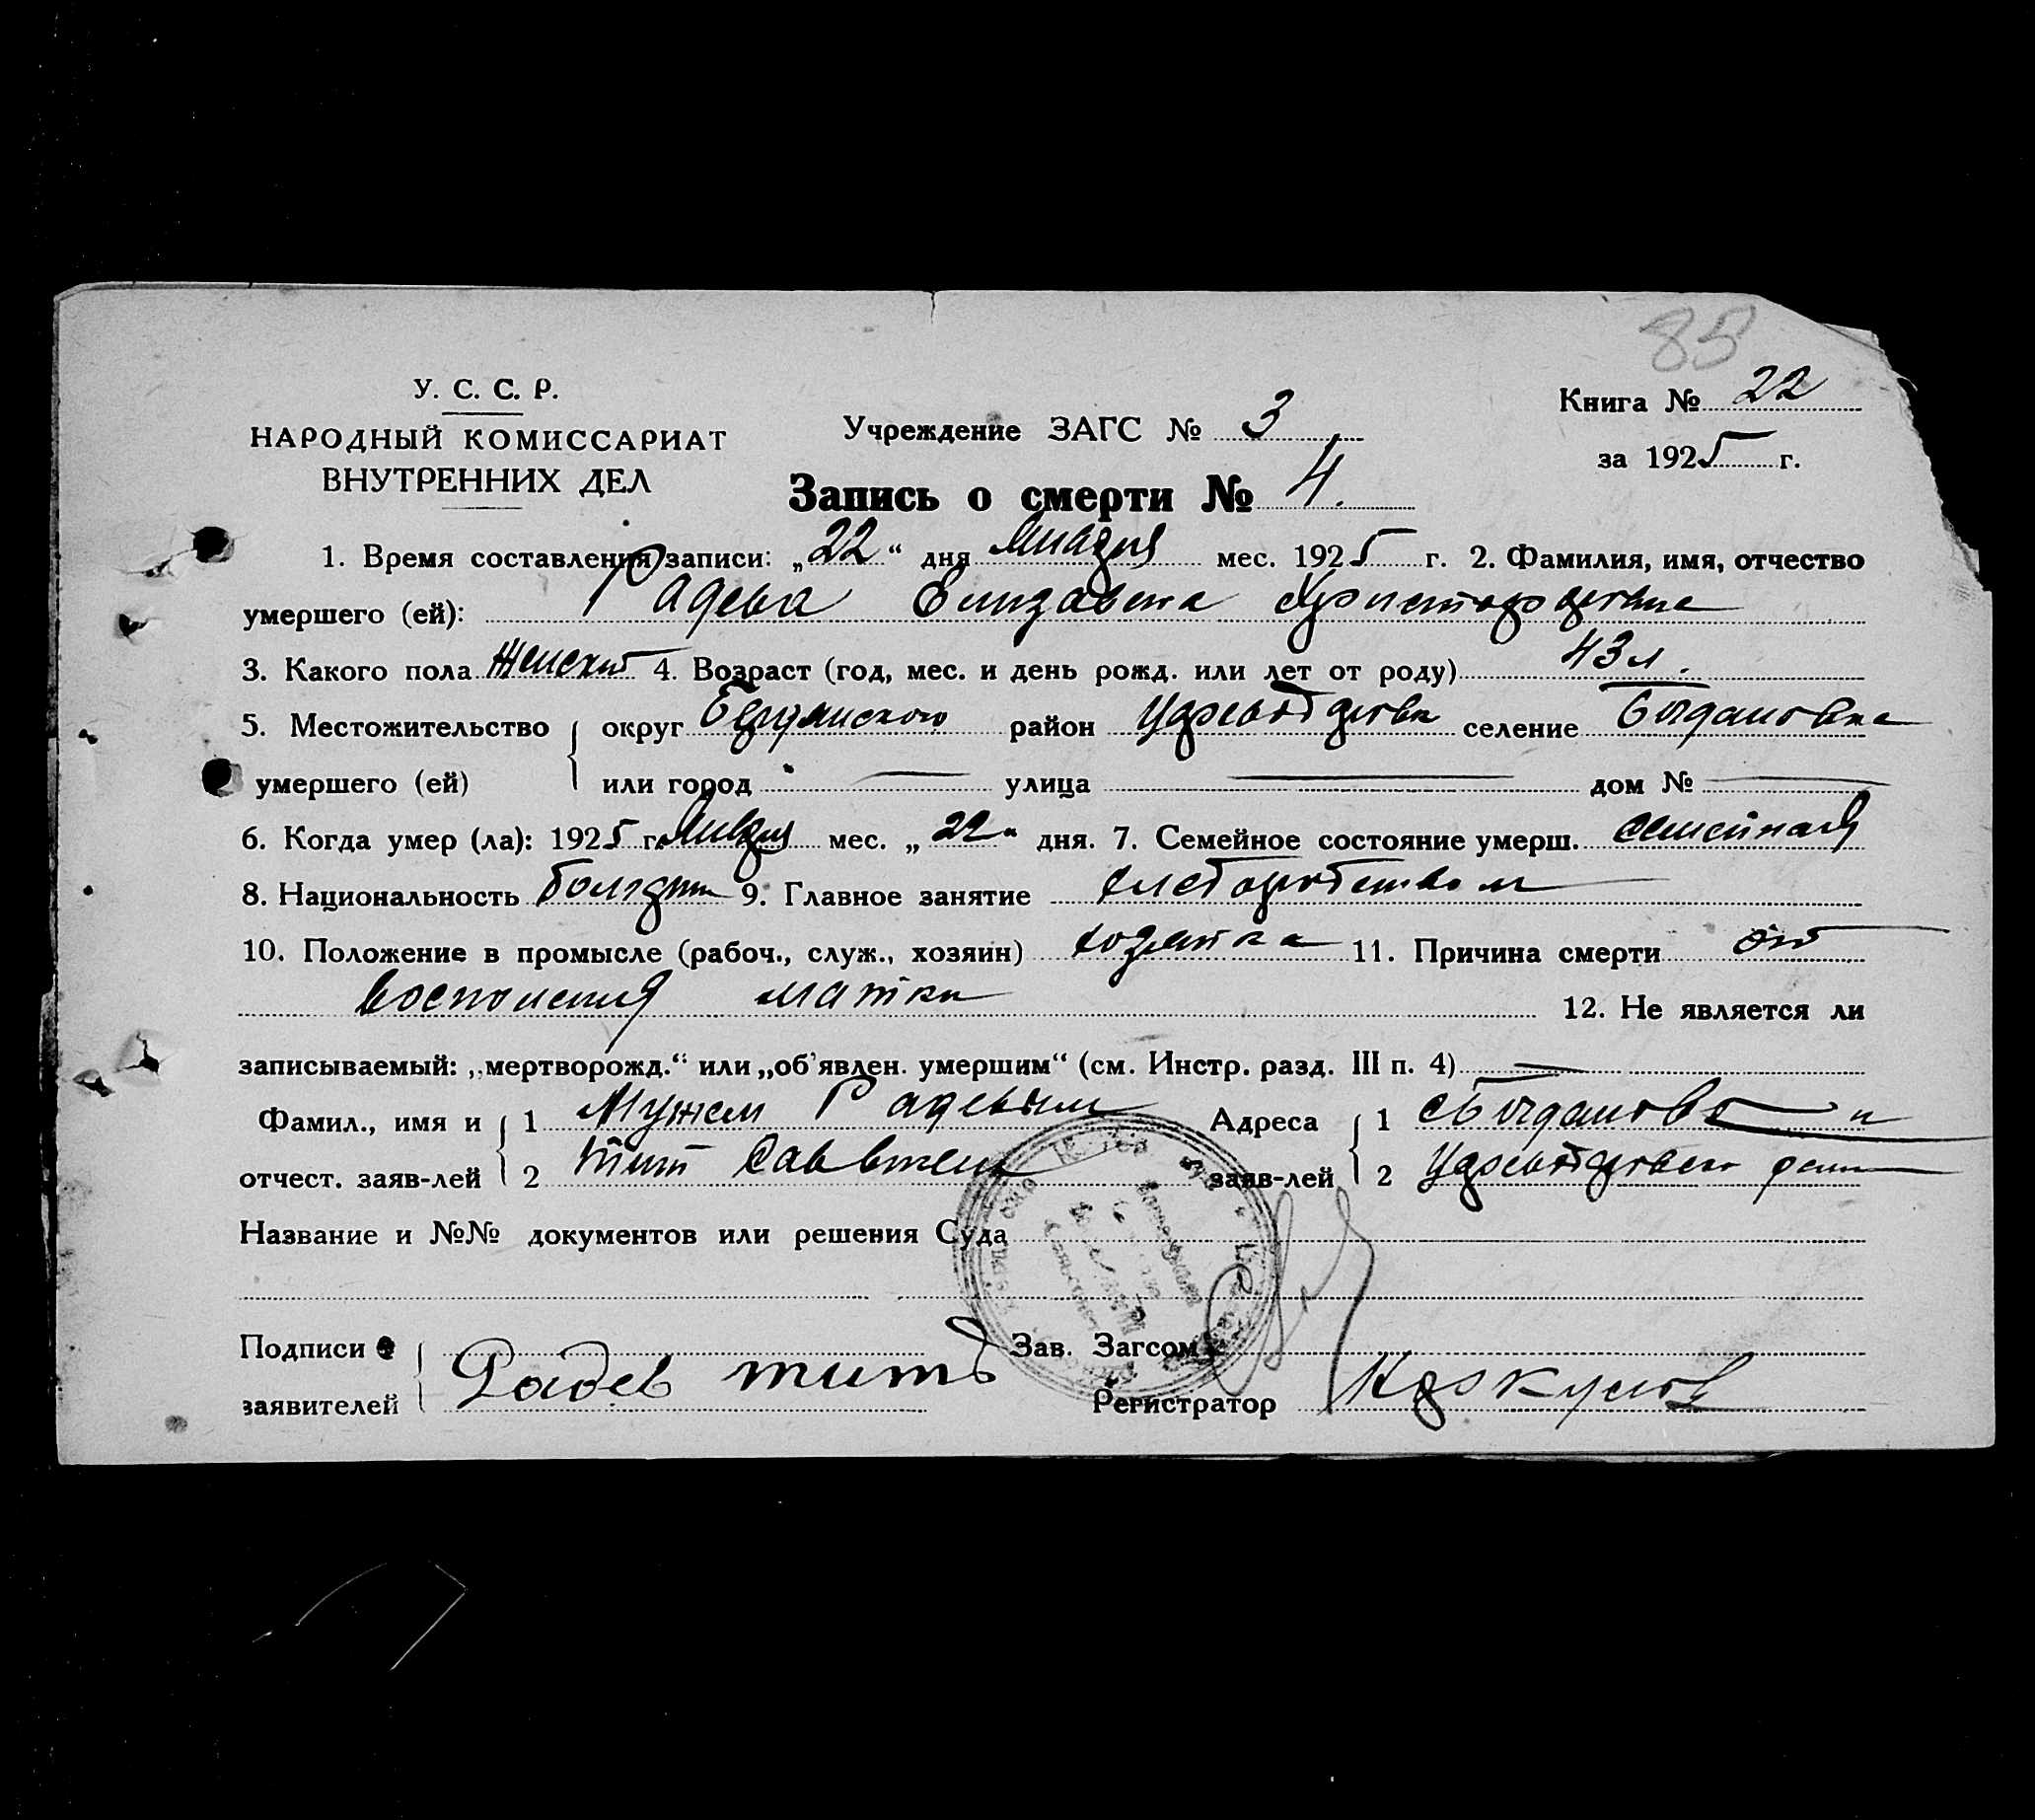 85
У. С. С. Р.
НАРОДНЫЙ КОМИССАРИАТ
ВНУТРЕННИХ ДЕЛ
Учреждение ЗАГС № 3
Книга № 22
за 1925 г.
Запись о смерти № 4.
1. Время составления записи: „22“ дня Января мес. 1925 г. 2. Фамилия, имя, отчество
умершего (ей): Радева Елизавета
3. Какого пола Женский 4. Возраст (год, мес. и день рожд. или лет от роду) 43 л.
5. Местожительство округ Бердянского район селение Богдановка
умершего (ей) или город — улица — дом № —
6. Когда умер (ла): 1925 г. Января мес. „22“ дня. 7. Семейное состояние умерш. семейная
8. Национальность болгарин 9. Главное занятие хлеборобством
10. Положение в промысле (рабоч., служ., хозяин) хозяйка 11. Причина смерти от
воспаления матки 12. Не является ли
записываемый: „мертворожд.“ или „об'явлен. умершим“ (см. Инстр. разд. III п. 4) —
Фамил., имя и 1 Мужем Радевым Адреса 1 с Богдановка
отчест. заяв-лей 2 Тит Саввинен заяв-лей 2
Название и №№ документов или решения Суда
Подписи Зав. Загсом
заявителей Радев Титъ Регистратор